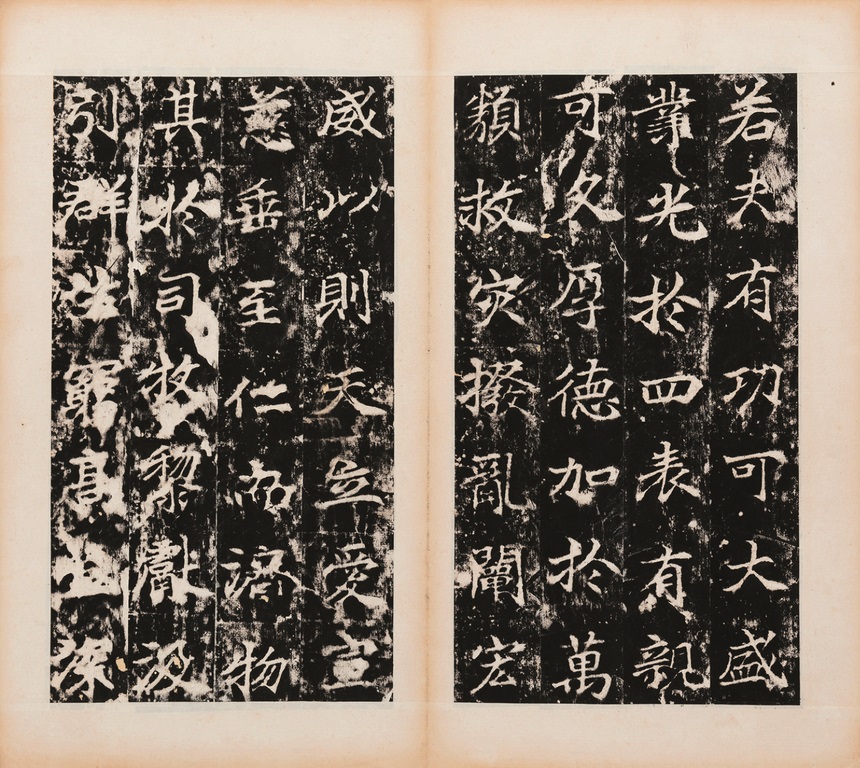 若夫有功可大盛
業光於四表有親
可久厚德加於萬
類救灾撥亂闡宏
威以則天立愛宣
慈垂至仁而濟物
其於司牧黎獻汲
引群生高深